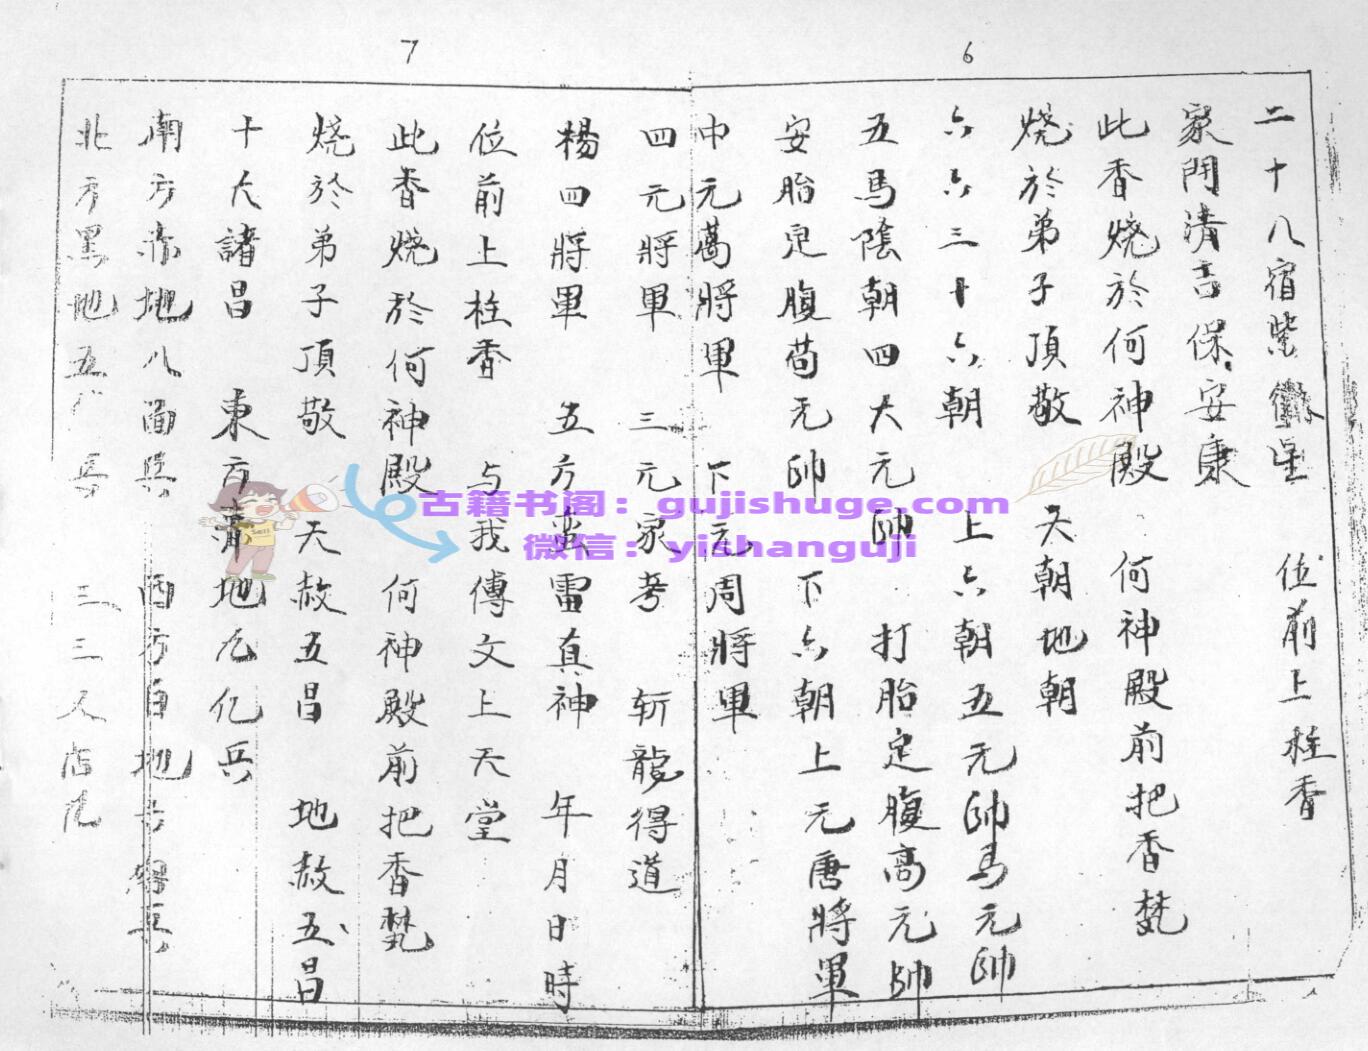 6
二十八宿紫微星　位前上柱香
家門清吉保安康
此香燒於何神殿　何神殿前把香焚
燒於弟子頂敬　天朝地朝
六六三十六朝　上六朝五元帥馬元帥
五馬陰朝四大元帥　打胎定腹高元帥
安胎定腹苟元帥　下六朝上元唐將軍
中元葛將軍　下元周將軍
7
四元將軍　三元家考　斩龍得道
楊四將軍　五方蛮雷真神　年月日時
位前上柱香　与我傳文上天堂
此香燒於何神殿　何神殿前把香焚
燒於弟子頂敬　天赦五昌　地赦五昌
十大諸昌　東方青地九仡兵
南方赤地八面兵　西方白地兵
北方黑地五　兵　三三人
古籍书阁：gujishuge.com
微信：yishanguji